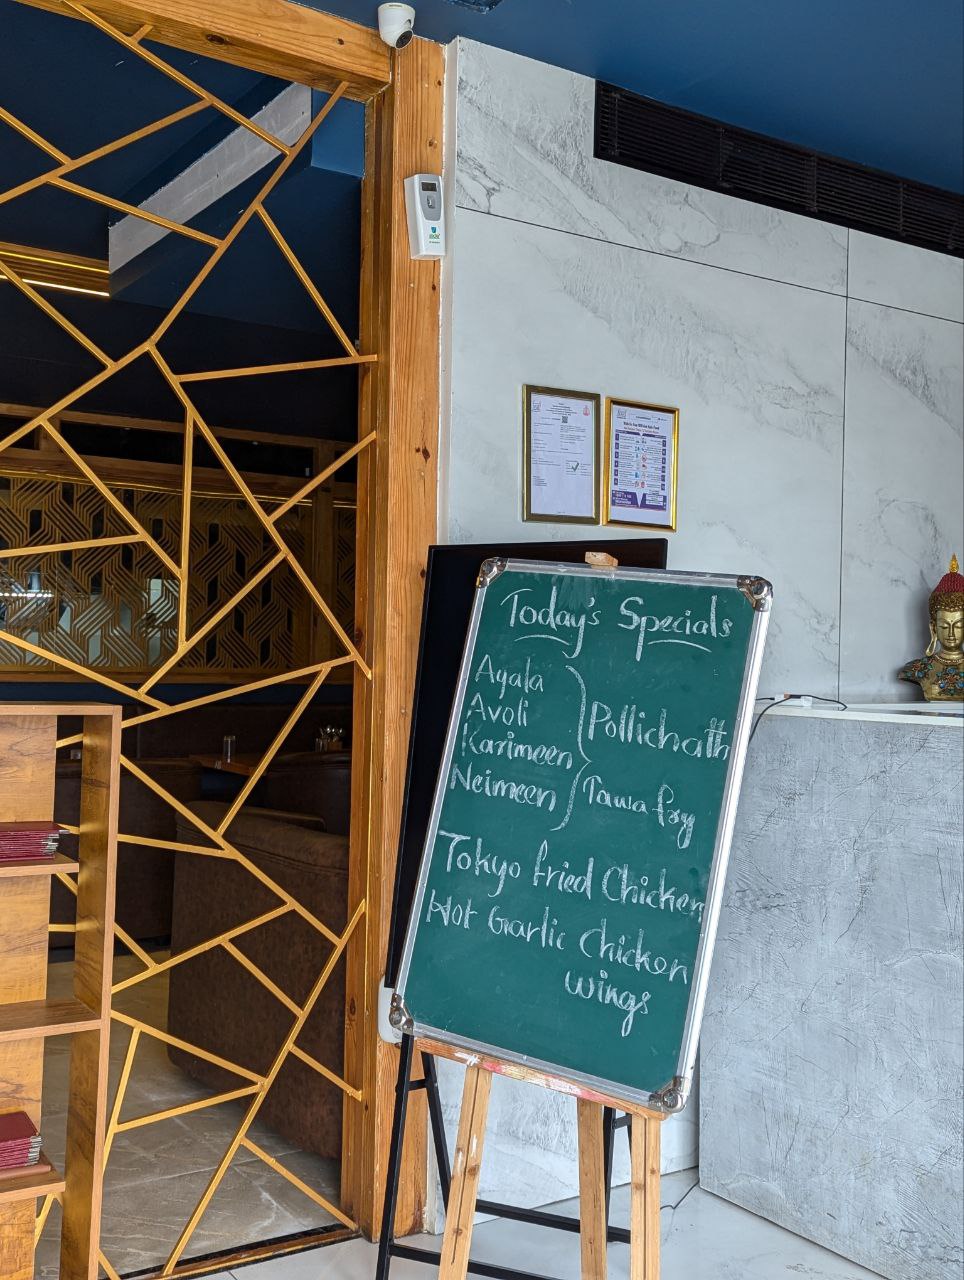 Today's Specials
Ayala
Avoli
Karimeen
Neimeen
Pollichath
Tawa fry
Tokyo fried Chicken
Hot Garlic Chicken
wings